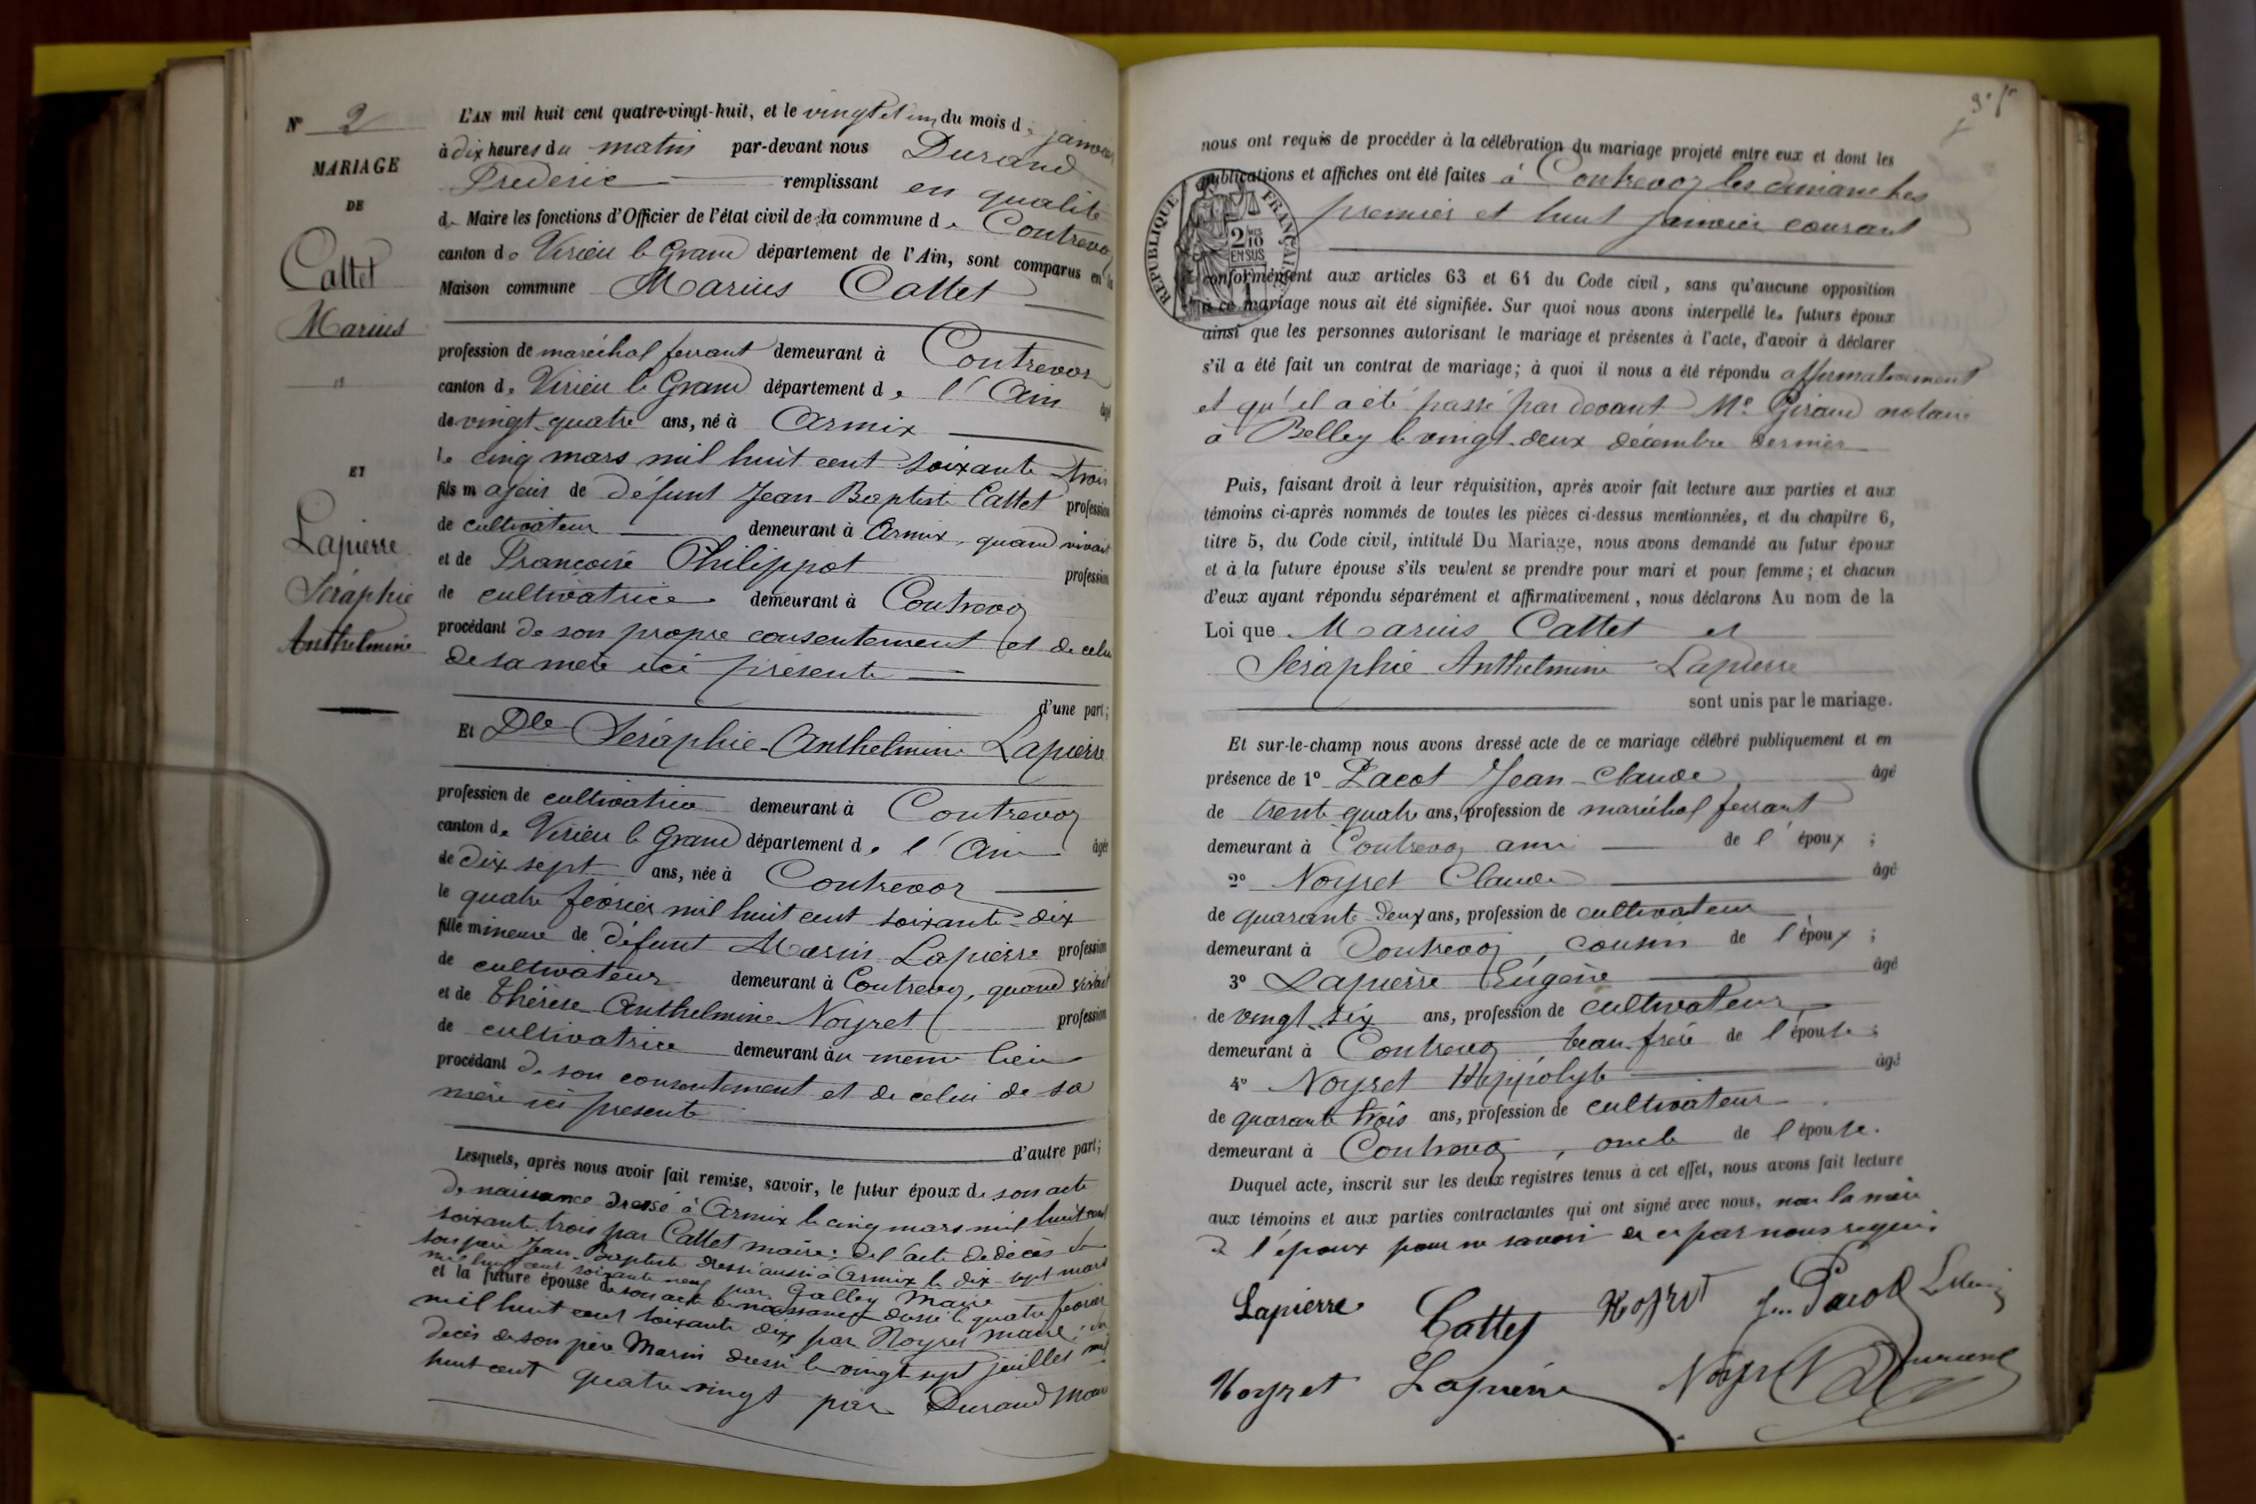 N° 2
MARIAGE
DE
Cattet
Marius
ET
Lapierre
Séraphie
Anthelmine
L'AN mil huit cent quatre-vingt-huit, et le vingt et un du mois de janvier
à dix heures du matin par-devant nous Durand
Frederic remplissant en qualité
de Maire les fonctions d'Officier de l'état civil de la commune de Contrevoz
canton de Virieu le Grand département de l'Ain, sont comparus en la
Maison commune Marius Cattet
profession de maréchal ferrant demeurant à Contrevoz
canton de Virieu le Grand département de l'Ain âgé
de vingt-quatre ans, né à Armix
le cinq mars mil huit cent soixante-trois
fils majeur de défunt Jean-Baptiste Cattet profession
de cultivateur demeurant à Armix, quand vivait
et de Francoise Philippot profession
de cultivatrice demeurant à Contrevoz
procédant de son propre consentement et de celui
de sa mère ici présente
d'une part;
Et Dlle Séraphie-Anthelmine Lapierre
profession de cultivatrice demeurant à Contrevoz
canton de Virieu le Grand département de l'Ain âgée
de dix sept ans, née à Contrevoz
le quatre février mil huit cent soixante-dix
fille mineure de défunt Marin Lapierre profession
de cultivateur demeurant à Contrevoz, quand vivait
et de Thérèse Anthelmine Noyret profession
de cultivatrice demeurant au même lieu
procédant de son consentement et de celui de sa
mère ici présente
d'autre part;
Lesquels, après nous avoir fait remise, savoir, le futur époux de son acte
de naissance dressé à Armix le cinq mars mil huit cent
soixante trois par Cattet maire; de l'acte de décès de
son père Jean-Baptiste dressé aussi à Armix le dix-sept mars
mil huit cent soixante neuf par Galley Maire
et la future épouse de son acte de naissance dressé le quatre février
mil huit cent soixante dix par Noyret maire, du
décès de son père Marin dressé le vingt sept juillet mil
huit cent quatre-vingt par Durand Maire
nous ont requis de procéder à la célébration du mariage projeté entre eux et dont les
publications et affiches ont été faites à Contrevoz les dimanches
premier et huit janvier courant
RÉPUBLIQUE FRANÇAISE
2/10 EN SUS
conformément aux articles 63 et 64 du Code civil, sans qu'aucune opposition
à ce mariage nous ait été signifiée. Sur quoi nous avons interpellé les futurs époux
ainsi que les personnes autorisant le mariage et présentes à l'acte, d'avoir à déclarer
s'il a été fait un contrat de mariage; à quoi il nous a été répondu affirmativement
et qu'il a été passé par devant Me Giraud notaire
à Belley le vingt-deux décembre dernier
Puis, faisant droit à leur réquisition, après avoir fait lecture aux parties et aux
témoins ci-après nommés de toutes les pièces ci-dessus mentionnées, et du chapitre 6,
titre 5, du Code civil, intitulé Du Mariage, nous avons demandé au futur époux
et à la future épouse s'ils veulent se prendre pour mari et pour femme; et chacun
d'eux ayant répondu séparément et affirmativement, nous déclarons Au nom de la
Loi que Marius Cattet et
Séraphie Anthelmine Lapierre
sont unis par le mariage.
Et sur-le-champ nous avons dressé acte de ce mariage célébré publiquement et en
présence de 1° Pacot Jean-Claude âgé
de trente-quatre ans, profession de maréchal ferrant
demeurant à Contrevoz ami de l'époux ;
2° Noyret Claude âgé
de quarante-deux ans, profession de cultivateur
demeurant à Contrevoz, cousin de l'époux ;
3° Lapierre Eugène âgé
de vingt-six ans, profession de cultivateur
demeurant à Contrevoz beau-frère de l'épouse ;
4° Noyret Hippolyte âgé
de quarante trois ans, profession de cultivateur
demeurant à Contrevoz, oncle de l'épouse.
Duquel acte, inscrit sur les deux registres tenus à cet effet, nous avons fait lecture
aux témoins et aux parties contractantes qui ont signé avec nous, non la mère
de l'époux pour ne savoir de ce par nous requise.
Lapierre Cattet Noyret J. Pacot
Noyret Lapierre Noyret Durand